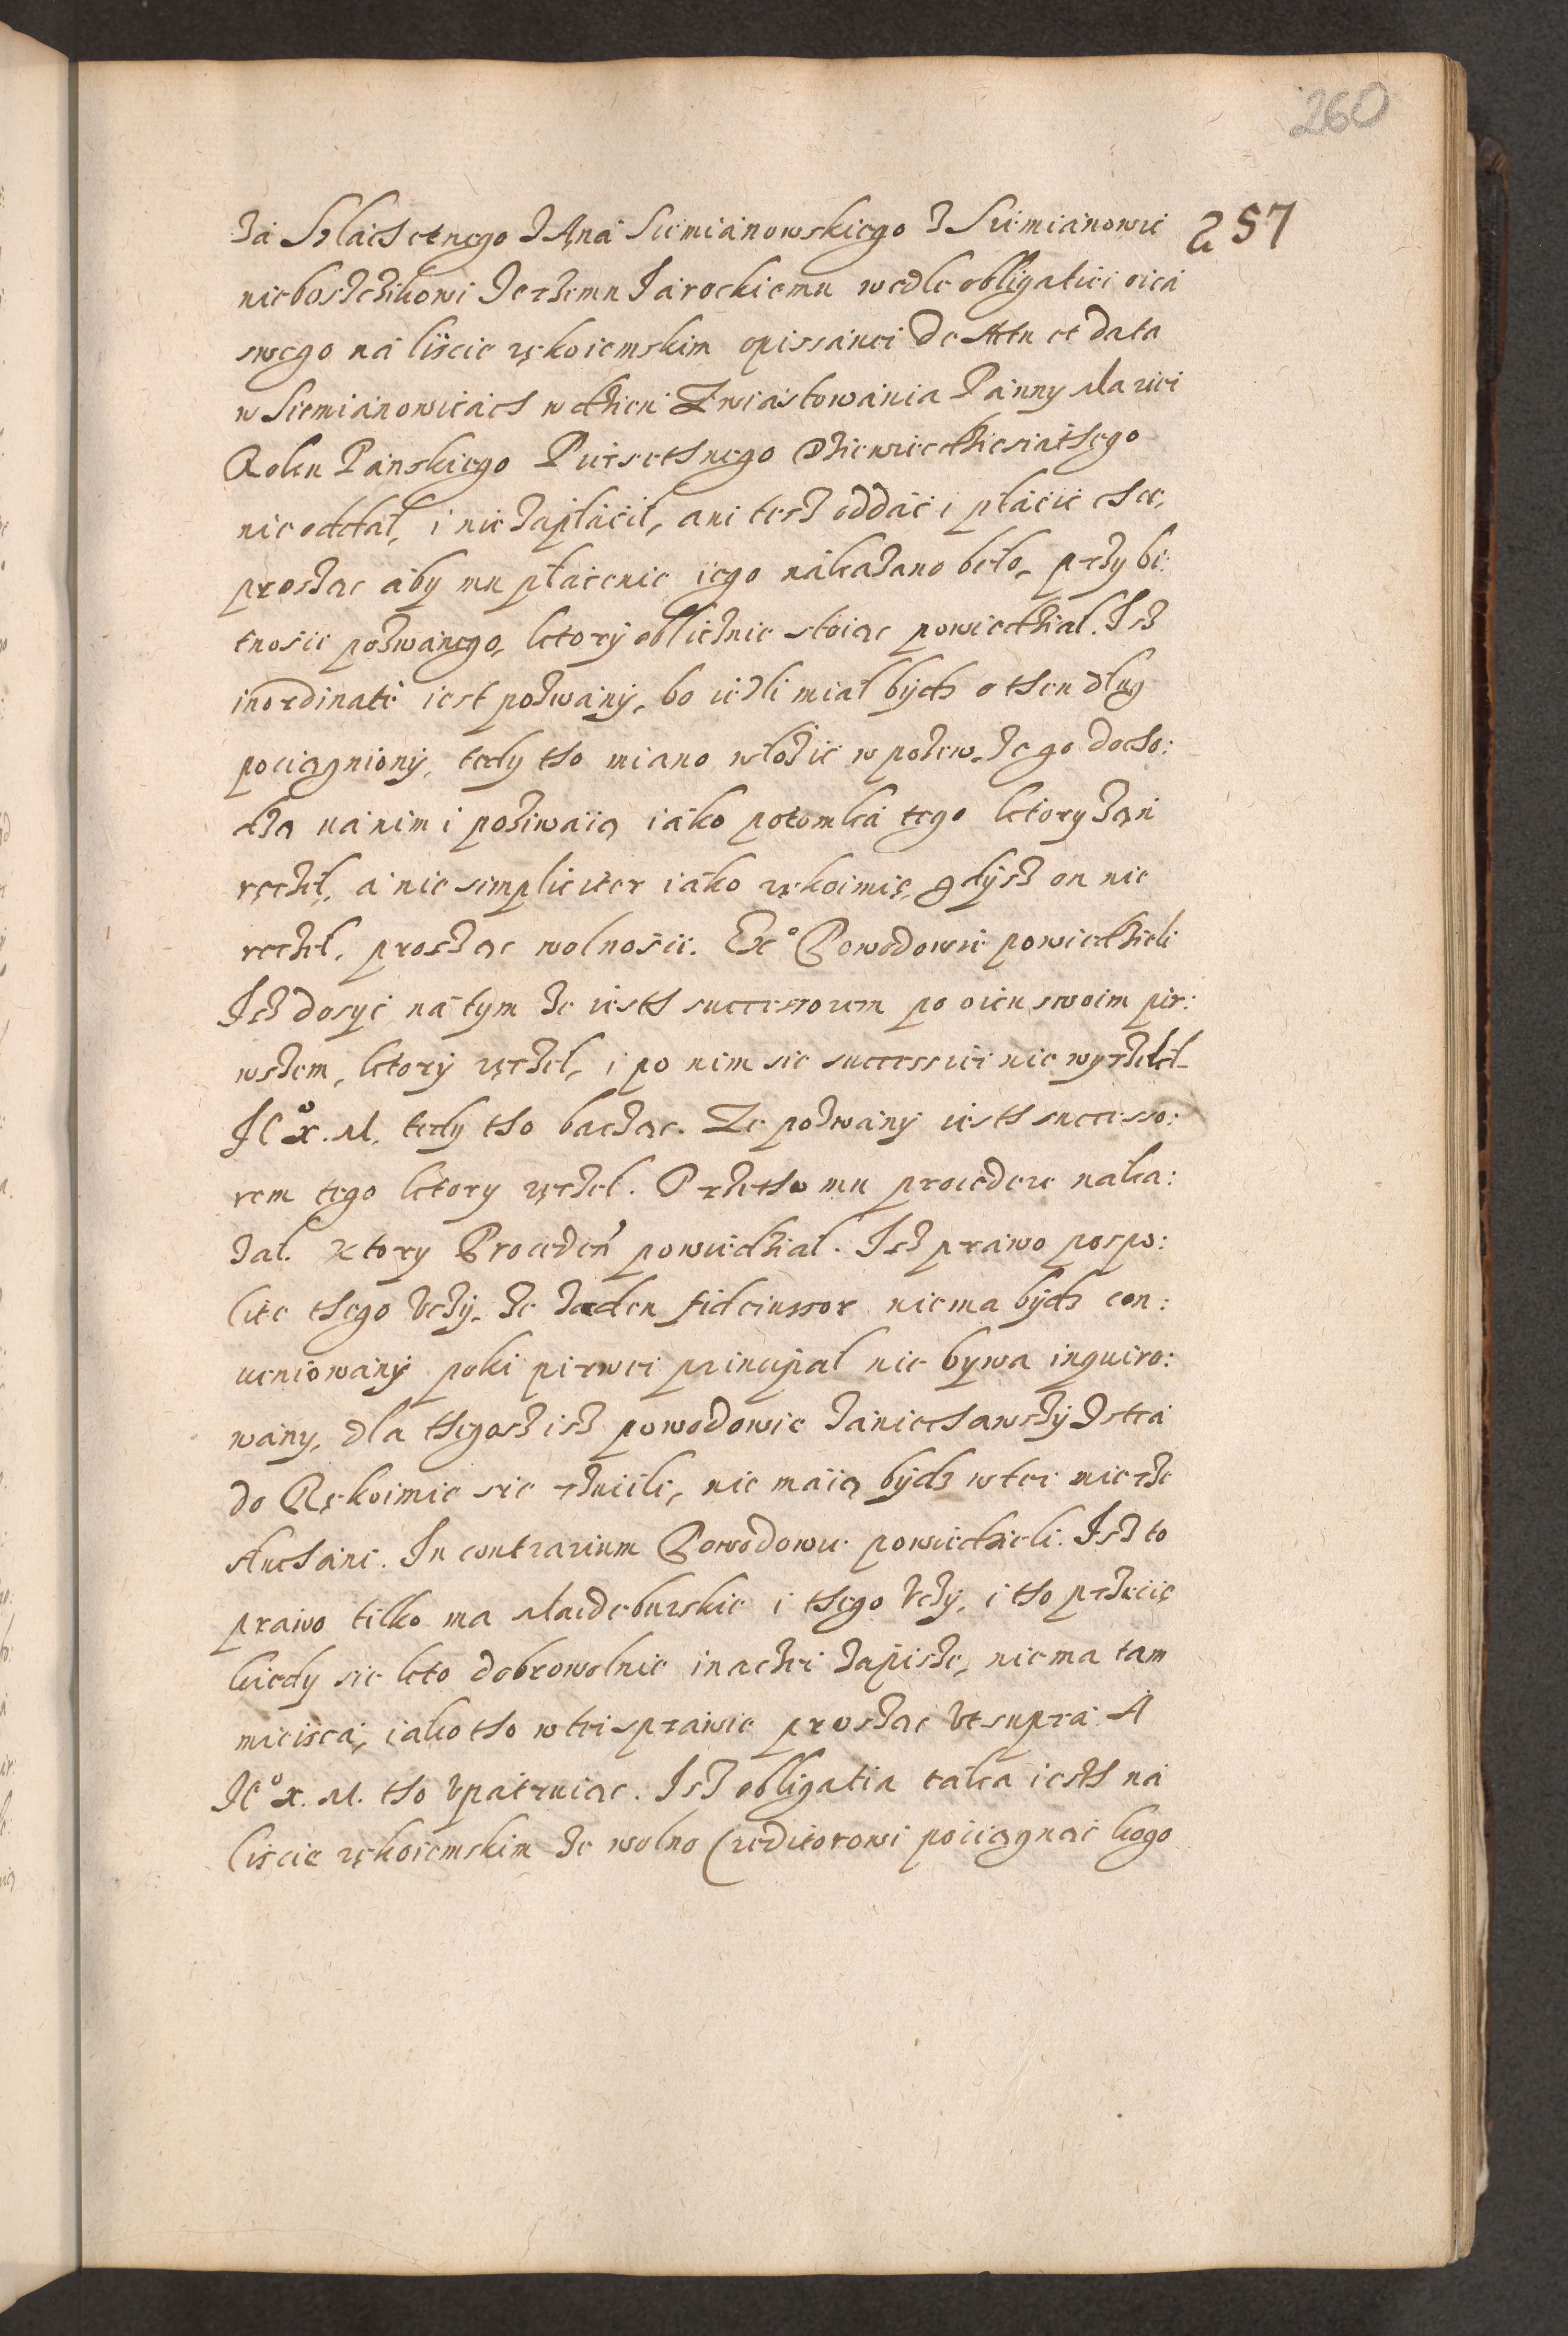 260
257
Za Szlachetnego JAna Siemianowskiego z Siemianowic
nieboszczikowi Jerzemu Jarockiemu wedle obligatiei oica
swego na liscie rękoiemskim opissanei De Actu et Data
w Siemianowicach w dzien Zwiastowania Panny Mariei
Roku Panskiego Pierscthnego dziewiecdziesiathego
nie oddał, i nie zapłacił, ani tesz oddac i płacic chce,
prosząc aby mu płacenie iego nakazano beło, przy bi:
tnosci pozwanego, ktory oblicznie stoiąc powiedzial. Isz
inordinate iest pozwany, bo iezli miał bydz o then dług
pociągniony, tedy tho miano włozic w pozew, ze go docho:
dzą na nim i poziwaią iako potomka tego ktory zań
ręczeł, a nie simpliciter iako rękoimię, gdysz on nie
ręczeł, prosząc wolnosci. Exº Powodowie powiedzieli
Isz dosyc na tym ze iesth successorem po oicu swoim pir:
wszem, ktory ręczeł, i po nim sie successiei nie wyrzekł
JCº X. M. tedy tho bacząc. Ze pozwany iesth successo:
rem tego ktory ręczel. Przetho mu procedere naka:
zal. Ktory Proceden' powiedzial. Isz prawo pospo:
lite thego vczy, ze zaden fideiussor nie ma bydz con:
ueniowany poki pirwei principal nie bywa inquiro:
wany, dla thegosz isz powodowie zaniechawszy Istca
do Rękoimie sie rzucili, nie maią bydz w tei mierze
słuchani. In contrarium Powodowie powiedzieli. Isz to
prawo tilko ma Maideburskie i thego vczy, i tho przecię
kiedy sie kto dobrowolnie inaczei zapisze, nie ma tam
mieisca, iako tho w tei sprawie prosząc vt supra. A
JCº X. M. tho vpatruiąc. Isz obligatia taka iesth na
liscie rękoiemskim ze wolno Creditorowi pociągnąc kogo